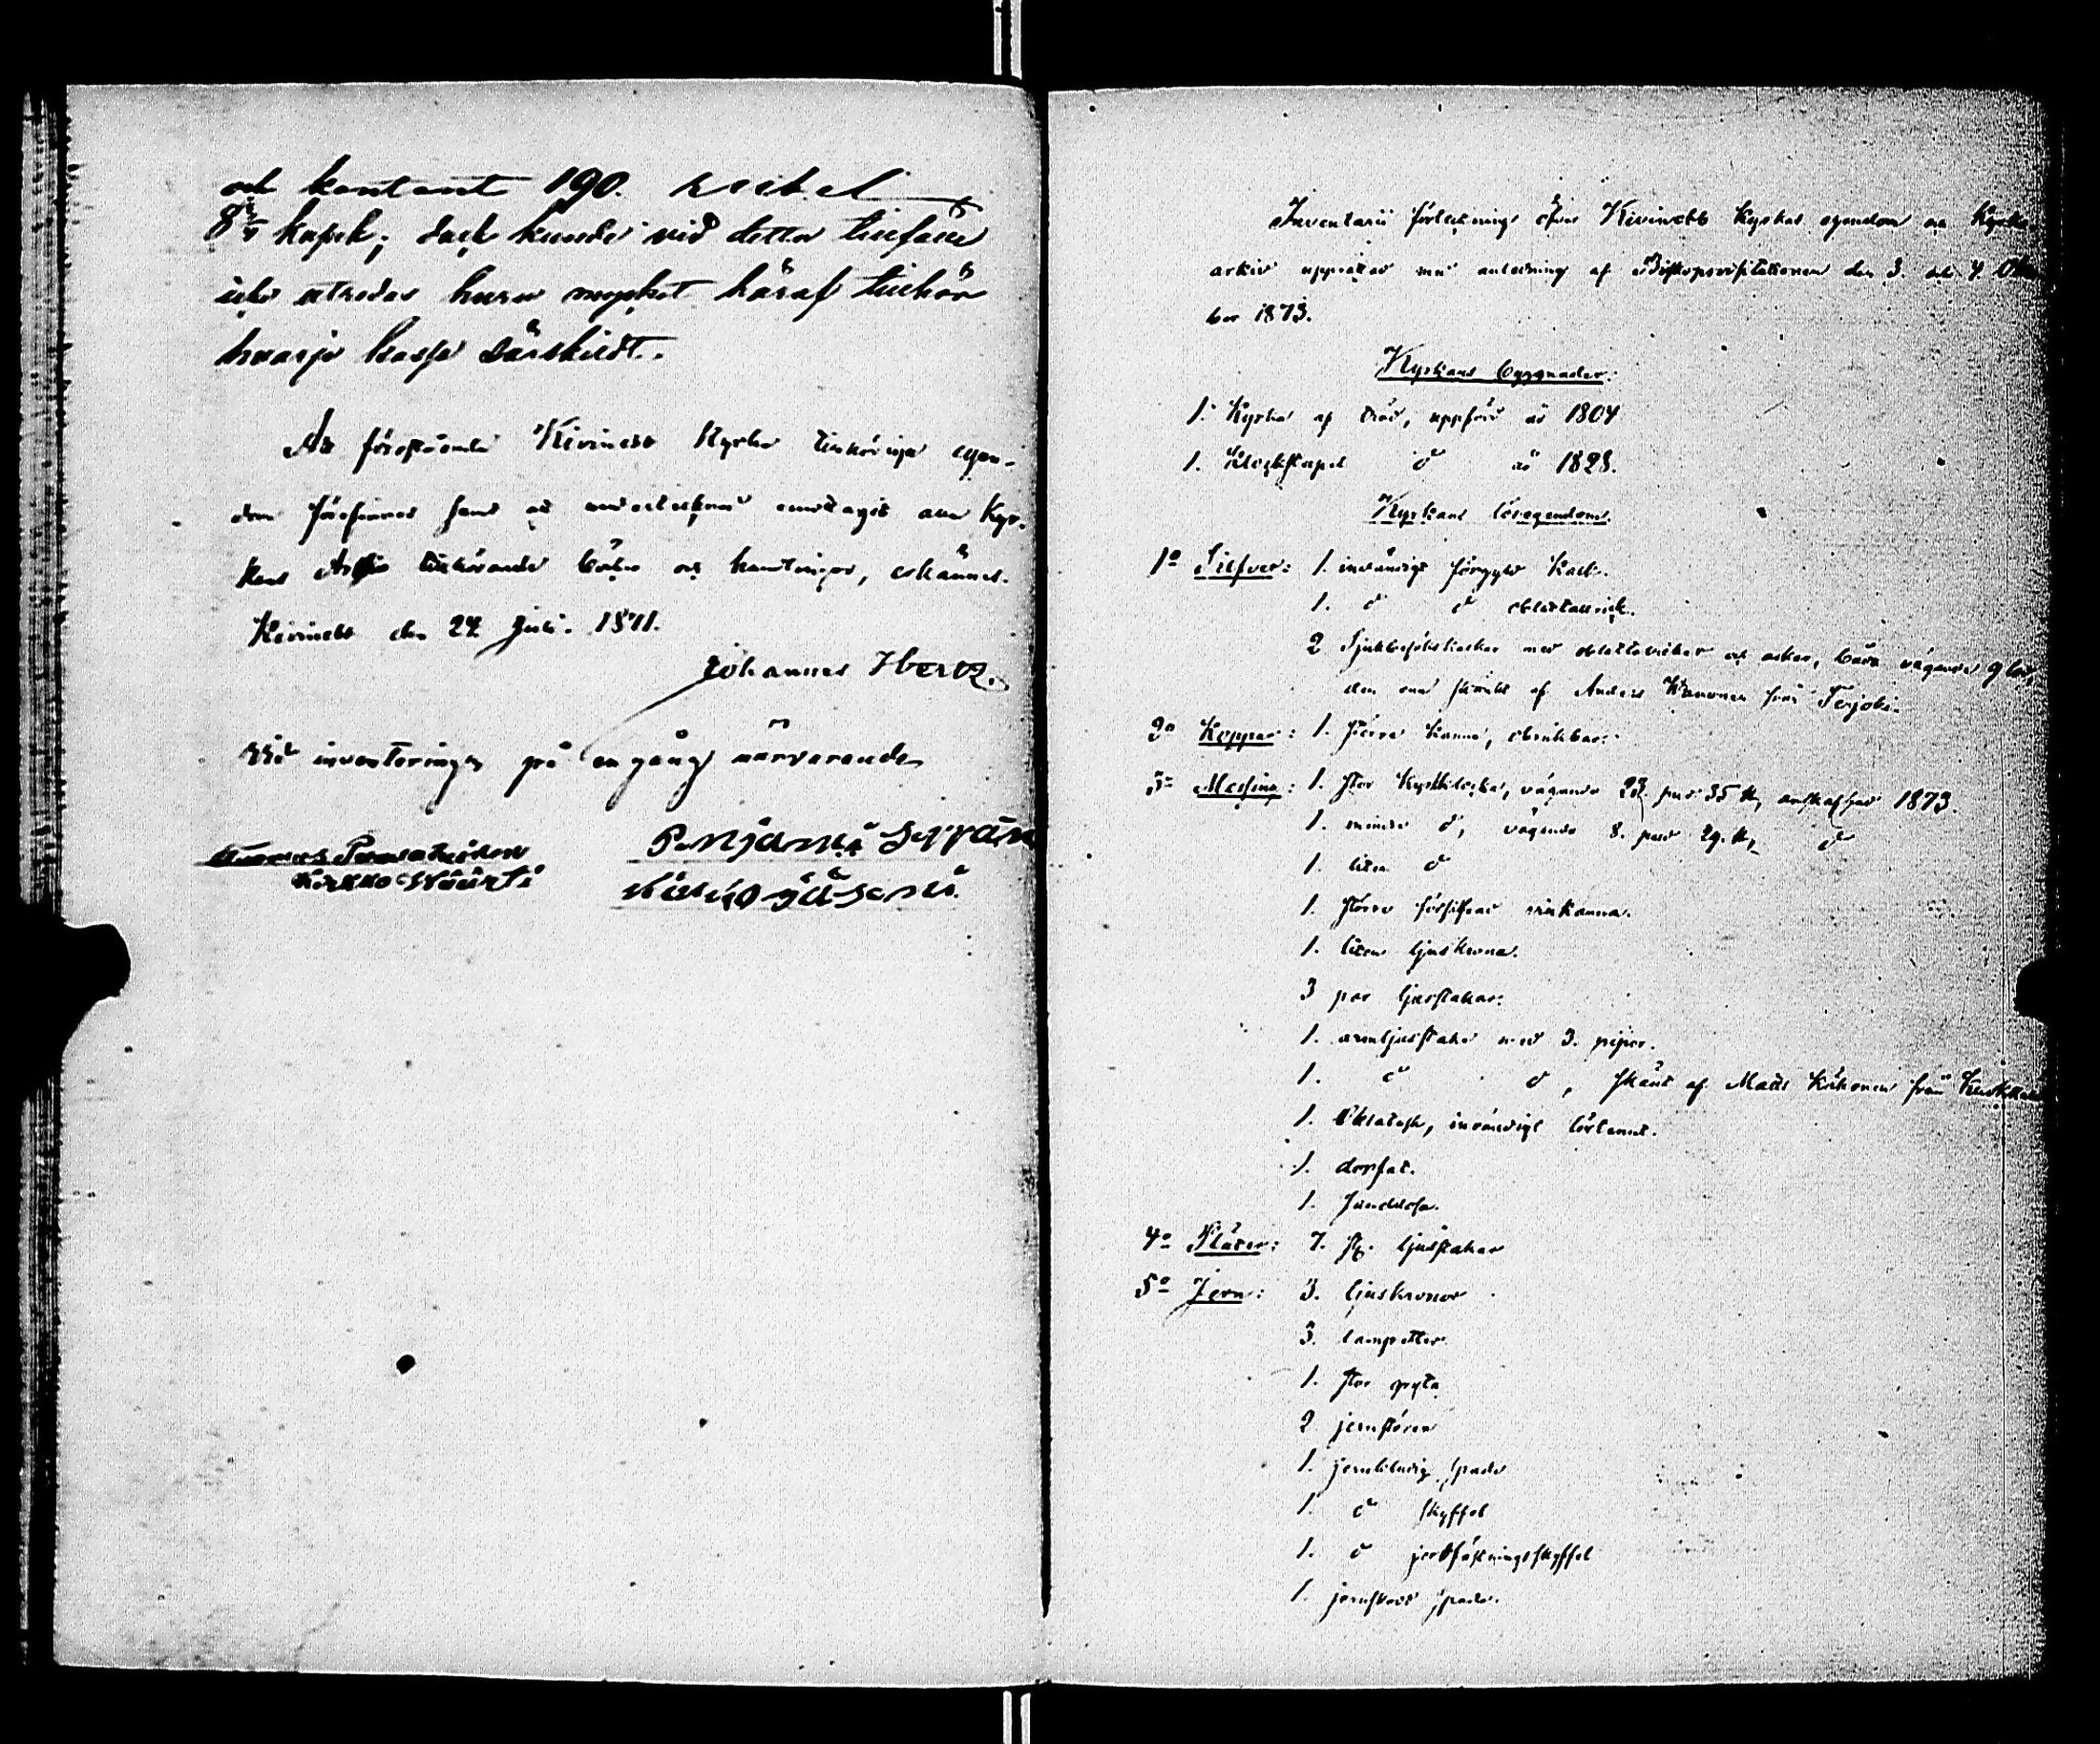 och kontant 190. rubel
8 kopek; dock kunde vid detta tillfälle
icke utredas huru mycket häraf tillhör
hvarje kassa särskildt.
At förestående Kivinebb Kyrka tillhöriga egen-
dom förefinnes samt at undertecknad emottagit alla Kyr-
kans Arkiv tillhörande böcker och handlingar, erkännes.
Kivinebb den 24 Juli. 1871.
Johannes Hertz.
Vid inventeringen på en gång närvarande
Kirkko Wäärti
Penjami Seppän
Inventarii förteckning öfver Kivinebb Kyrkas egendom och Kyrko
arkiv upprättad med anledning af Biskopsvisitationen den 3. och 4. Okto
ber 1873.
Kyrkans byggnader:
1. Kyrka af träd, uppförd år 1804
1. Klockstapel d:o år 1828.
Kyrkans lösegendom.
1:o Silfver: 1. invändigt förgyld kalk.
1. d:o d:o oblattallrick.
2 Sjukbesökskalkar med oblattallrikar och askar, båda vägande 9 lod,
den ena skänkt af Anders från Terijoki.
2:o Koppar: 1. större kanna, obrukbar.
3:o Messing: 1. stor Kyrkklocka, vägande 23. pud 35 ℔, anskaffad 1873.
1. mindre d:o, vägande 8. pud 29. ℔, d:o
1. liten d:o
1. större försilfrad vinkanna.
1. liten ljuskrona.
3 par ljusstakar.
1. armljusstake med 3. pipor.
1. d:o d:o, skänkt af Matts Kähönen från
1. Oblatask, invändigt förtennt.
1. dopfat.
1. Sanddosa.
4:o Pläter: 7. st. ljusstakar
5:o Jern: 3. ljuskronor
3. lampetter.
1. stor gryta
2 jernstörar
1. jernbeslagen spade
1. d:o skyffel
1. d:o jordfästningsskyffel
1. jernskodd spade.